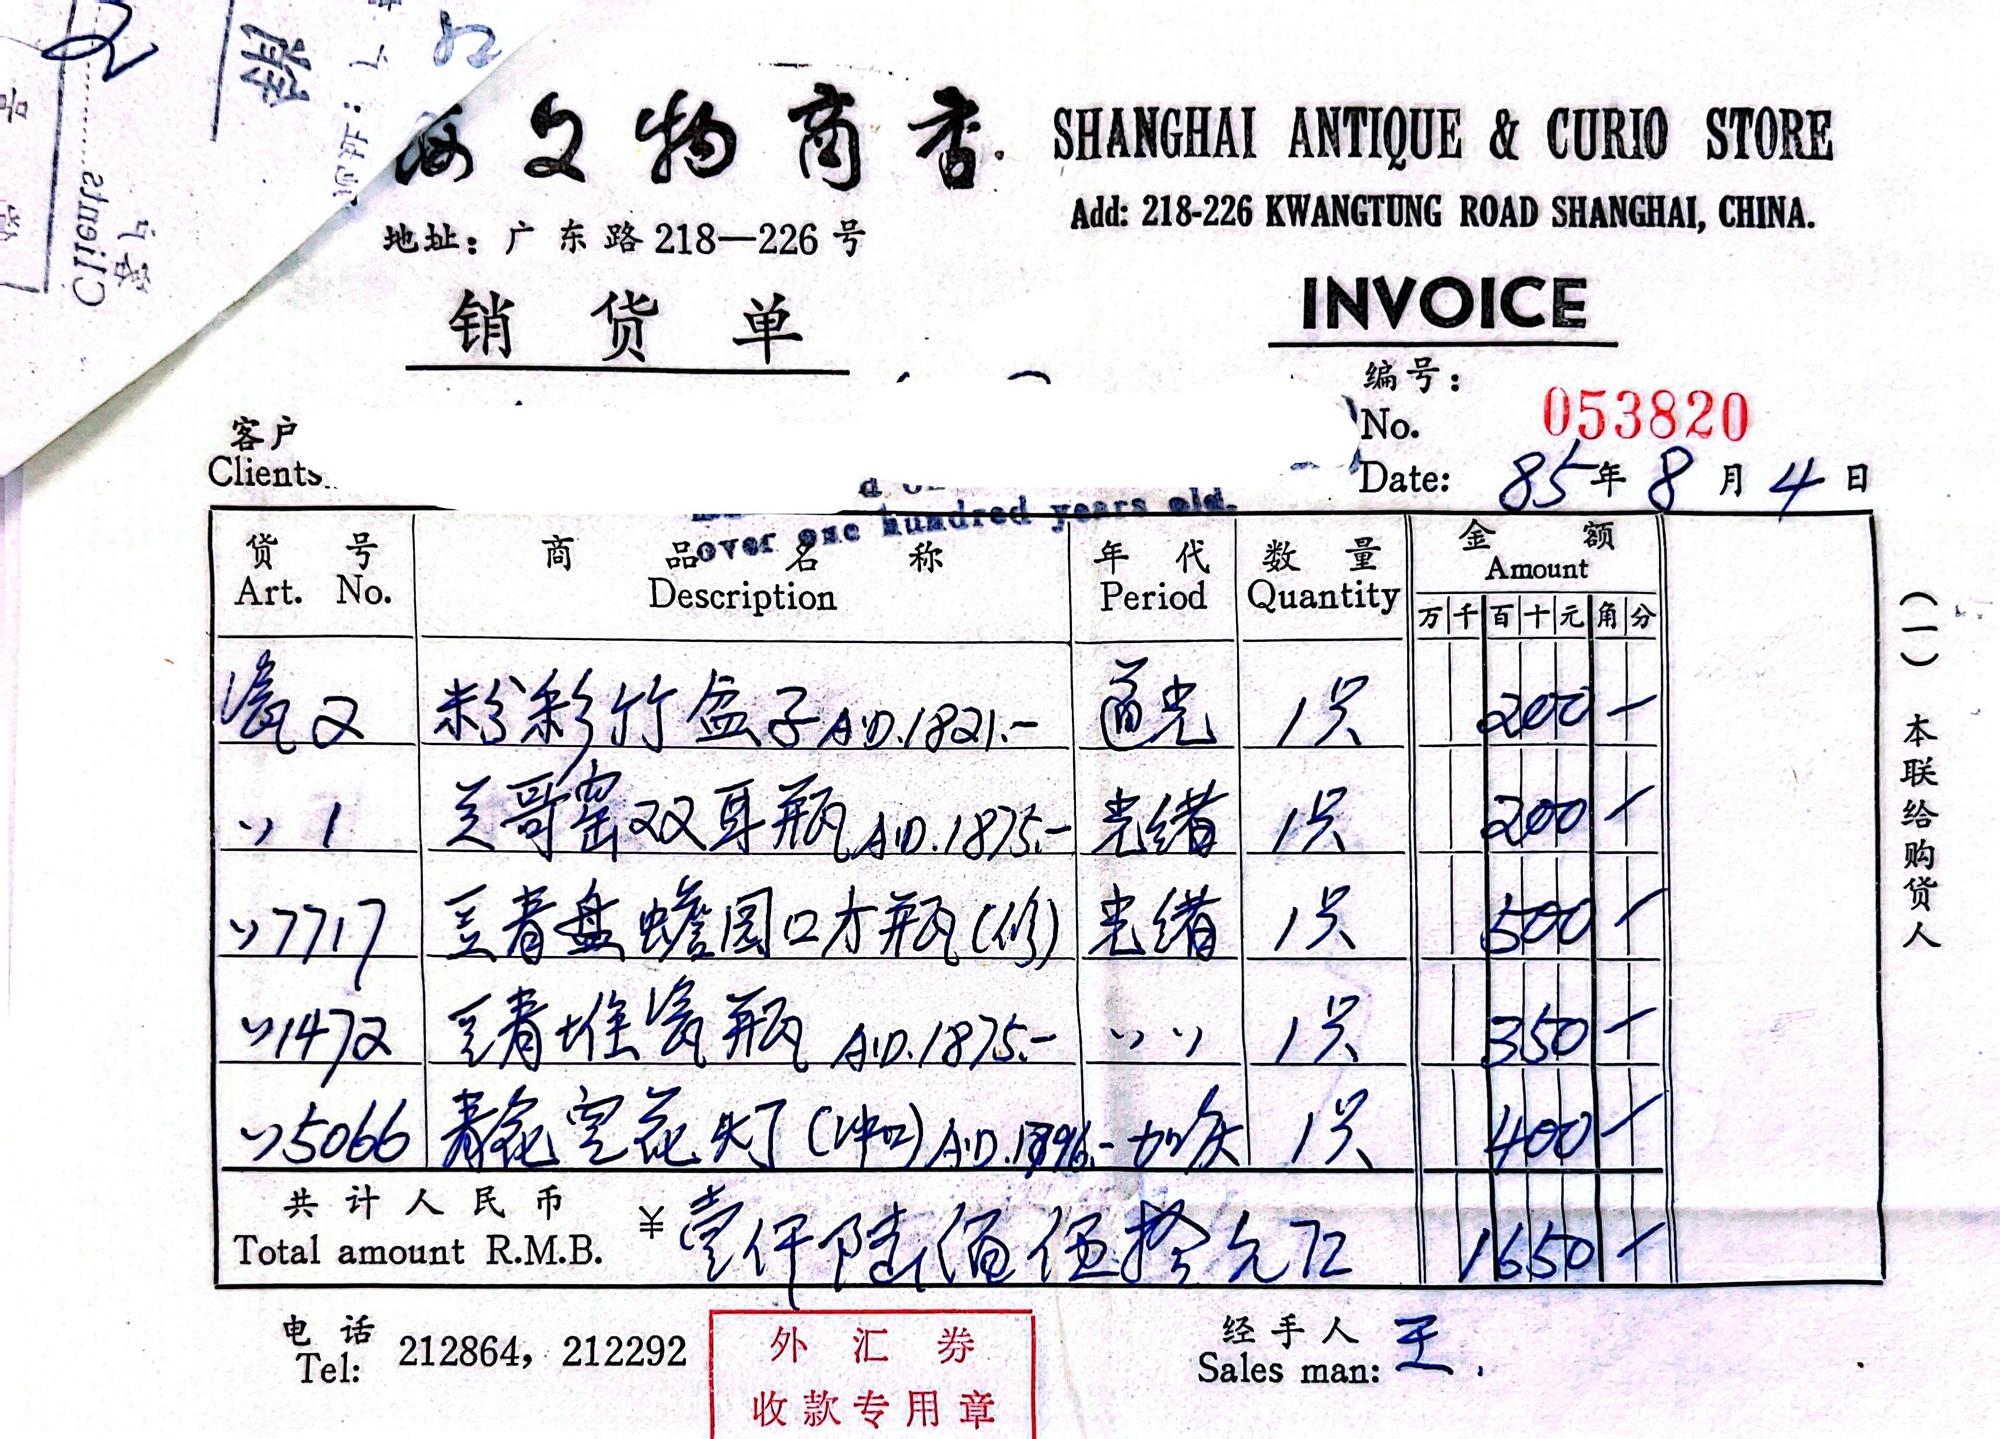 海文物商店
SHANGHAI ANTIQUE & CURIO STORE
地址：广东路218—226号
Add: 218-226 KWANGTUNG ROAD SHANGHAI, CHINA.
销货单
INVOICE
编号：
No. 053820
客户
Clients
Date: 85年8月4日
over one hundred years old.
货号 商品名称 年代 数量 金额
Art. No. Description Period Quantity Amount
万 千 百 十 元 角 分
瓷2 粉彩竹盒子A.D.1821.- 道光 1只 200 -
〃 1 哥窑双耳瓶A.D.1875.- 光绪 1只 200 -
〃7717 豆青盘蟾圆口方瓶(修) 光绪 1只 500 -
〃1472 豆青堆瓷瓶 A.D.1875.- 〃 〃 1只 350 -
〃5066 青花空花灯(冲口)A.D.1796.- 加庆 1只 400 -
共计人民币
Total amount R.M.B. ¥壹仟陆佰伍拾元正 1650 -
电话
Tel: 212864, 212292
外汇券
收款专用章
经手人
Sales man: 王.
(一) 本联给购货人
Clients
客户